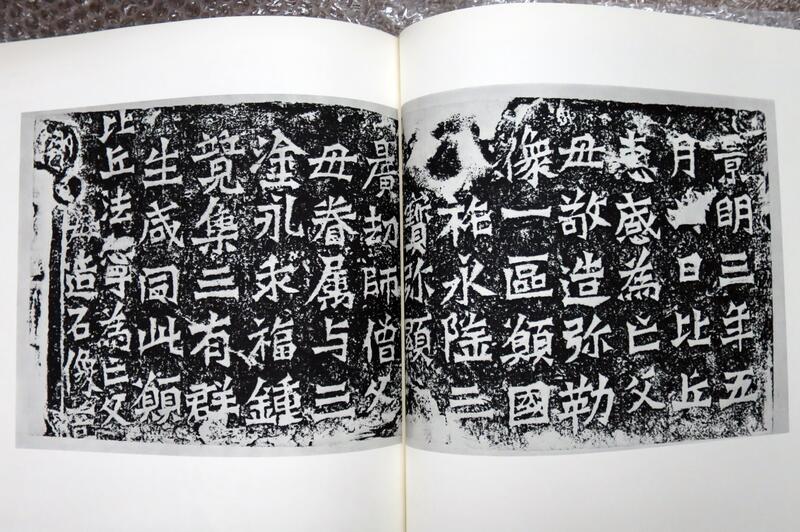 景明三年五
月日比丘
惠感為亡父
母敬造弥勒
像一區願國
祚永隆三
寶弥顯
曠劫師僧父
母眷属与三
塗永乖福鍾
竟集三有群
生咸同此願
比丘法寧為亡父
造石像